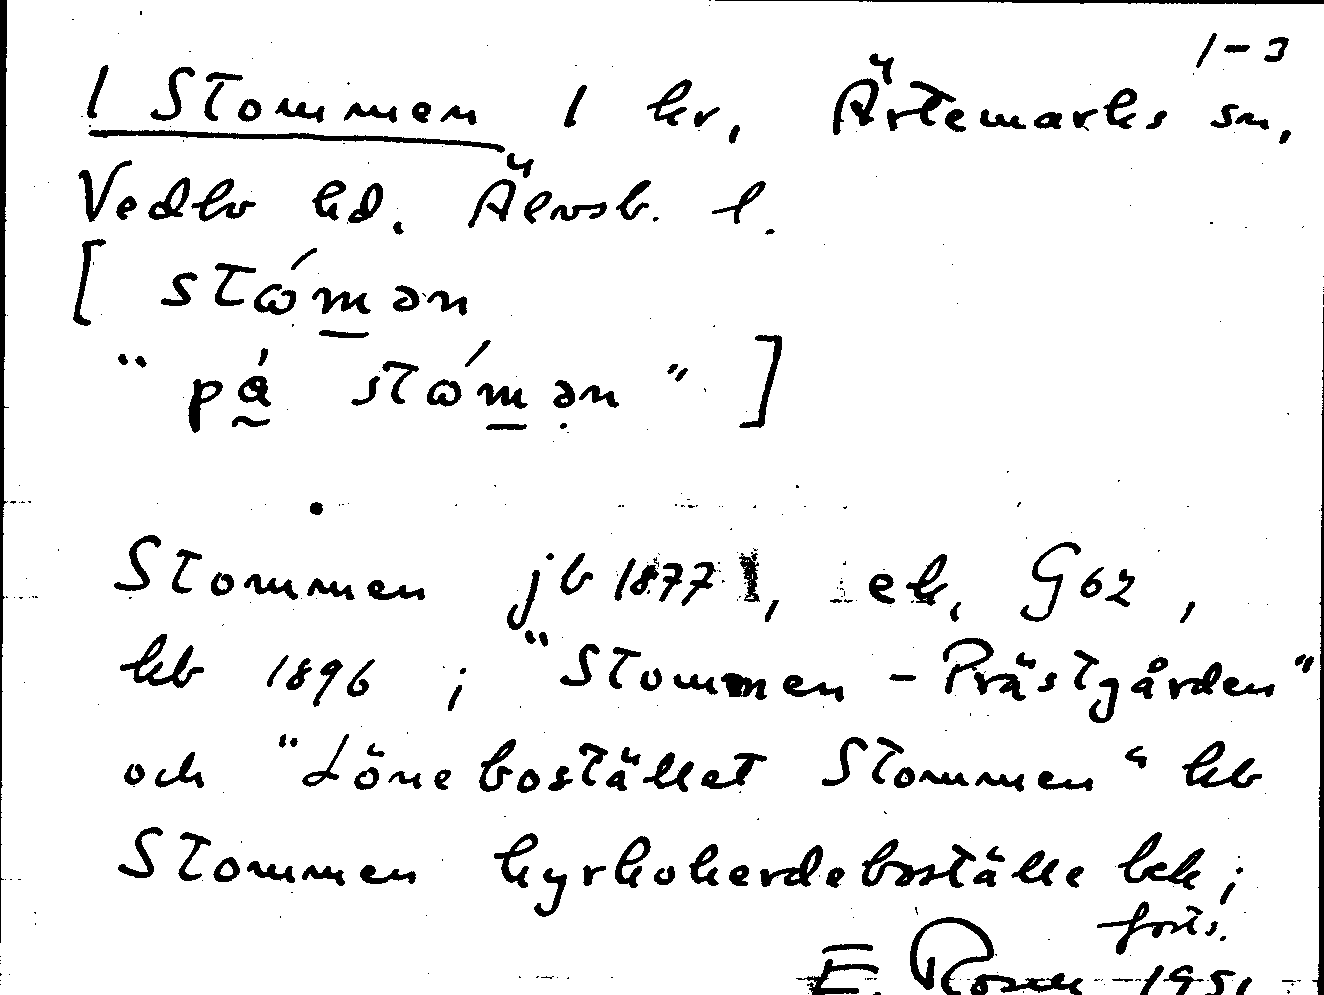 1-3
1 Stommen 1 hr, Ärtemarks sn,
Vedbo hd. Älvsb. l.
[ stɷ́mən
"på stɷ́mən" ]
Stommen jb 1877, ek, G62,
kb 1896; "Stommen - Prästgården"
och "Lönebostället Stommen" kb
Stommen kyrkoherdeboställe bek;
forts.
E. Rosell 1951